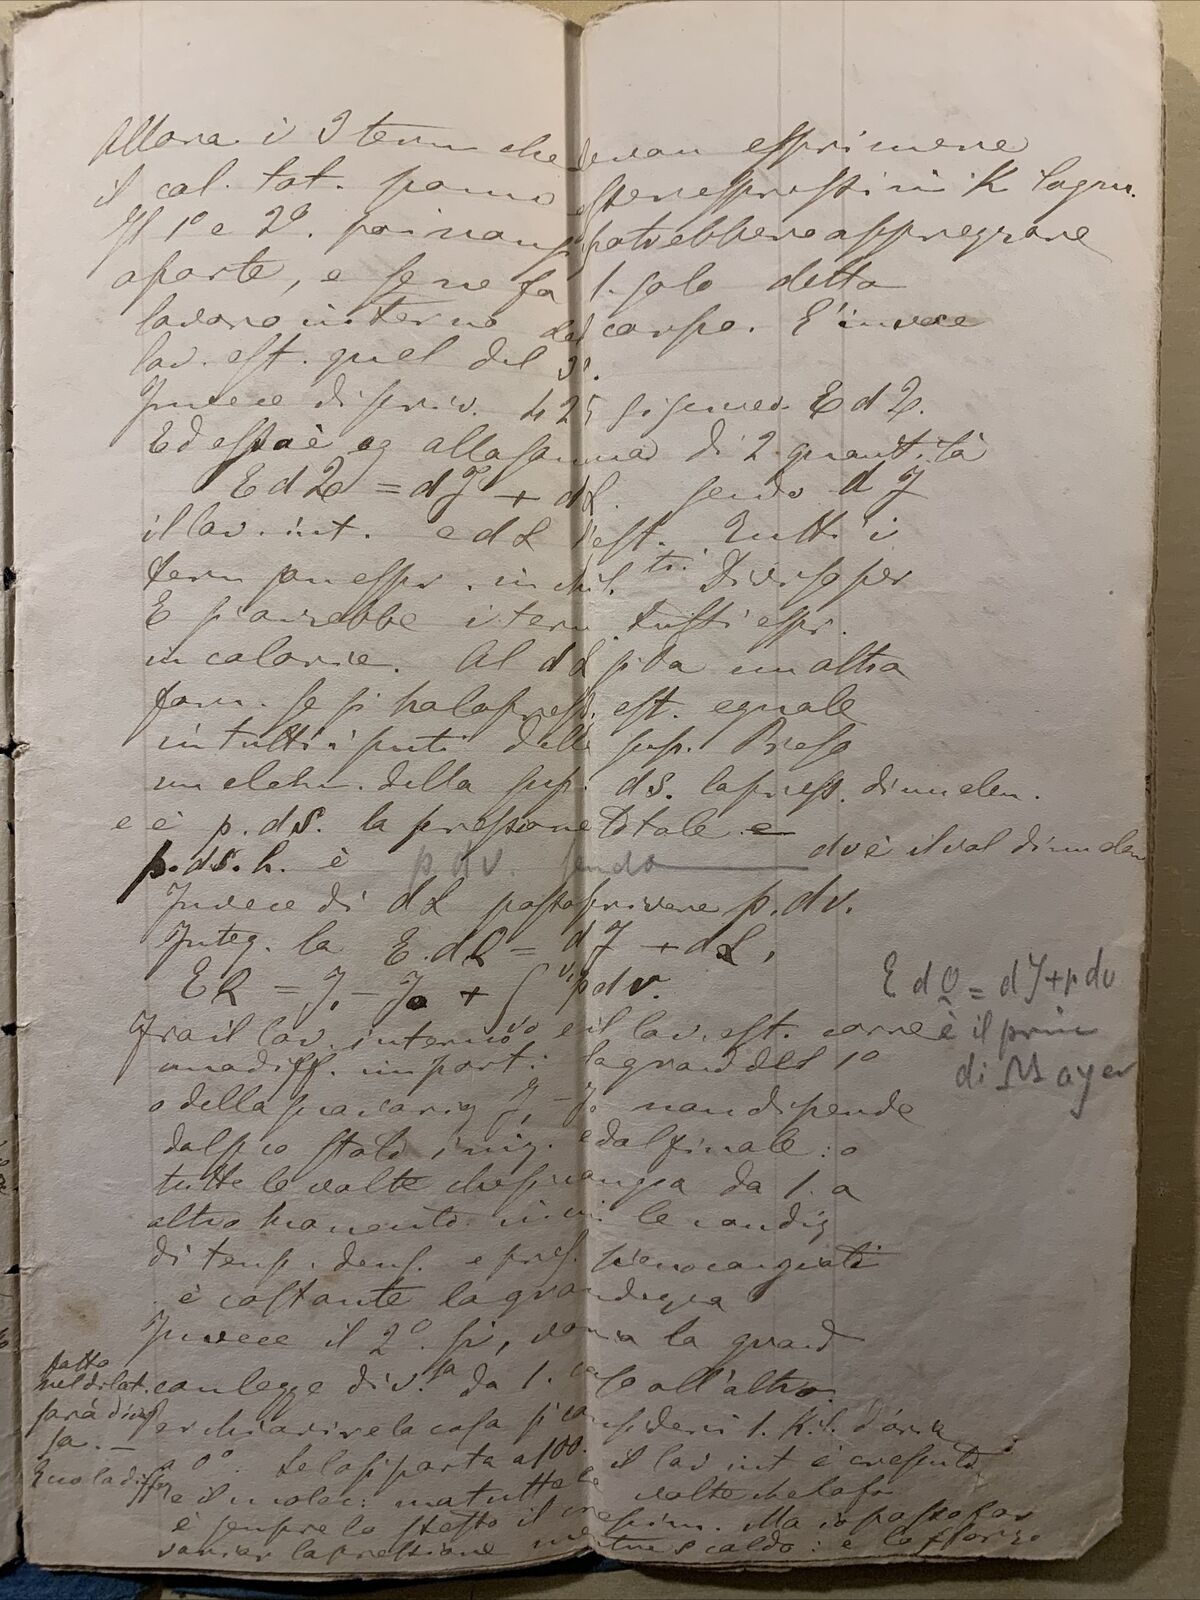 Allora i 3 term che devon esprimere
il cal. tot. ponno esser espressi in K lagm.
Il 1º e 2º. poi non si potrebbero appregiare
aparte, e se ne fa 1. solo detto
lavoro interno del corpo. E' invece
lav. est. quel del 3º.
Invece di scriv. 425 si scrive. E d Q.
Ed essa è eg alla somma di 2 quantità
E d Q = d J + d L. sendo d J
il lav. int. e d L l'est. Tutti i
term pon espr. in chil. tri. Diviso per
E si avrebbe i term. tutti espr.
in calorie. Al d L si dà un altra
form. se si ha la press. est. eguale
in tutti i punti della sup. Preso
un elem. della sup. ds. la press. di un elem.
e è p. ds. la pressione totale e
p. ds. h. è p. dv. sendo dv è il vol di un elem
Invece di d L posso scrivere p. dv.
Integ. la E. d Q = d J + d L,
E Q = J₁ - J₀ + ∫ v₁ v₀ p d v.
E d Q = d J + p dv
è il prin
di Mayer
Fra il lav. interno e il lav. est. corre
una diff. import: la grand del 1º
o della sua variaz J₁ - J₀ non dipende
dal suo stato iniz. e dal finale: o
tutte le volte che si cangia da 1. a
altro momento in cui le condiz
di temp. dens. e pres. sieno cangiati
è costante la grandezza
Invece il 2º. si, varia la grand
con legge div.sa da 1. caso all'altro.
fatto
nel dilat.
sarà diver
sa. —
Per chiarire la cosa si consideri 1. Kil. d'aria
a 0º. Se la si porta a 100. il lav int è cresciuto
e il molec: ma tutte le volte che la fa
è sempre lo stesso il cresim. Ma io posso far
variar la pressione mentre scaldo: e lo sforzo